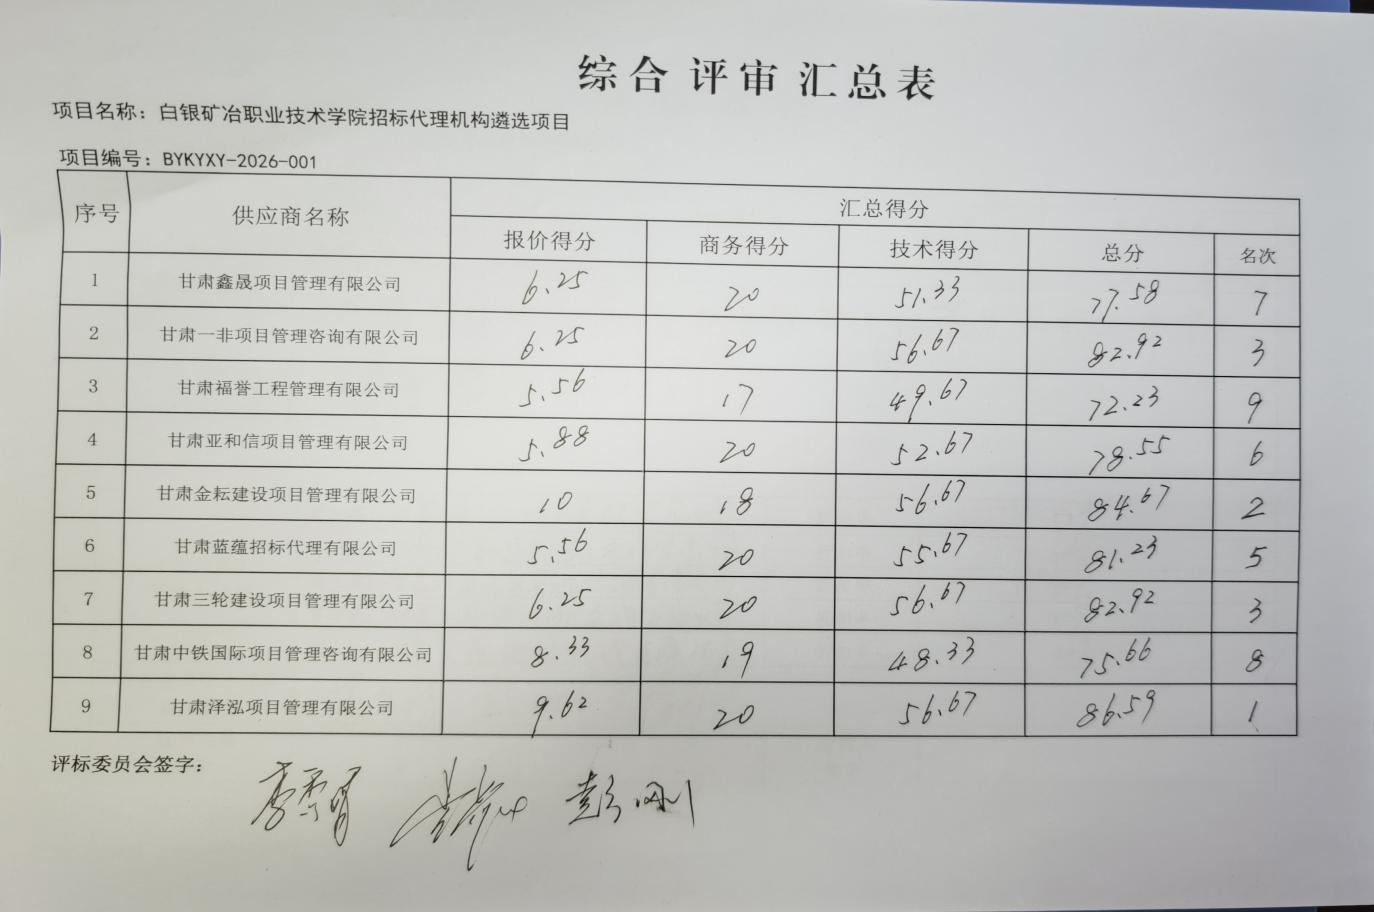 综合评审汇总表
项目名称：白银矿冶职业技术学院招标代理机构遴选项目
项目编号：BYKYXY-2026-001
序号 供应商名称 汇总得分
报价得分 商务得分 技术得分 总分 名次
1 甘肃鑫晟项目管理有限公司 6.25 20 51.33 77.58 7
2 甘肃一非项目管理咨询有限公司 6.25 20 56.67 82.92 3
3 甘肃福誉工程管理有限公司 5.56 17 49.67 72.23 9
4 甘肃亚和信项目管理有限公司 5.88 20 52.67 78.55 6
5 甘肃金耘建设项目管理有限公司 10 18 56.67 84.67 2
6 甘肃蓝蕴招标代理有限公司 5.56 20 55.67 81.23 5
7 甘肃三轮建设项目管理有限公司 6.25 20 56.67 82.92 3
8 甘肃中铁国际项目管理咨询有限公司 8.33 19 48.33 75.66 8
9 甘肃泽泓项目管理有限公司 9.62 20 56.67 86.59 1
评标委员会签字：